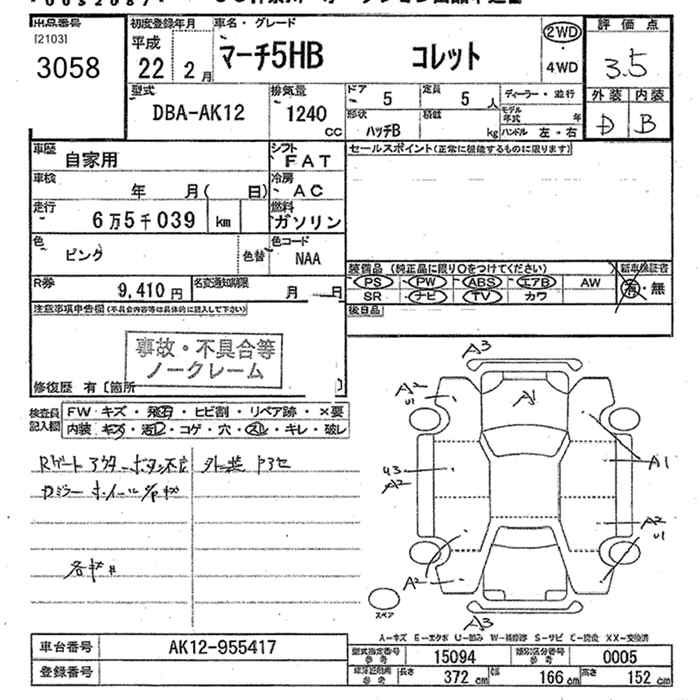 出品番号
[2103]
3058
初度登録年月
平成
22 2月
車名・グレード
マーチ5HB コレット
2WD
・
4WD
評価点
3.5
外装 内装
D B
型式
DBA-AK12
排気量
1240
cc
ドア
5
定員
5人
形状
ハッチB
積載
kg
ディーラー・並行
モデル年式 年
ハンドル 左・右
車歴
自家用
シフト
FAT
車検
年 月( 日)
冷房
AC
走行
6万5千039 km
燃料
ガソリン
色
ピンク
色替
色コード
NAA
R券
9,410円
名変通知期限
月 日
セールスポイント(正常に機能するものに限ります)
装備品 (純正品に限り○をつけてください)
PS・PW・ABS・エアB・AW
SR・ナビ・TV・カワ
新車保証書
有・無
後日品
注意事項申告欄(不具合内容等は具体的に記入して下さい)
事故・不具合等
ノークレーム
修復歴 有〔箇所 〕
検査員
記入欄
FW キズ・飛石・ヒビ割・リペア跡・×要
内装 キズ・汚レ・コゲ・穴・スレ・キレ・破レ
Rゲートアウターボタン不良 外装
ミラー ホイール
各キズ
A3
A2
U1
A1
U3
A2
A1
A2
U1
A2
A3
スペア
A-キズ E-エクボ U-凹み W-補修跡 S-サビ C-腐食 XX-交換済
車台番号
AK12-955417
登録番号
型式指定番号
参考
15094
類別区分番号
参考
0005
車庫証明用
参考
長さ
372 cm
幅
166 cm
高さ
152 cm